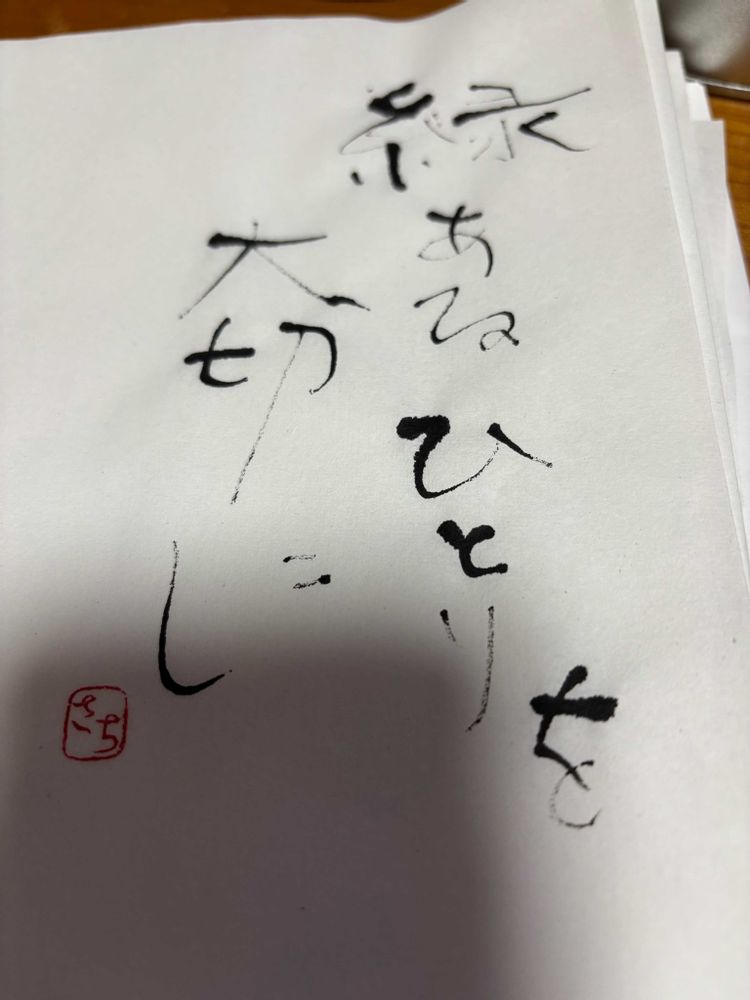 縁あるひとりを
大切に
さち